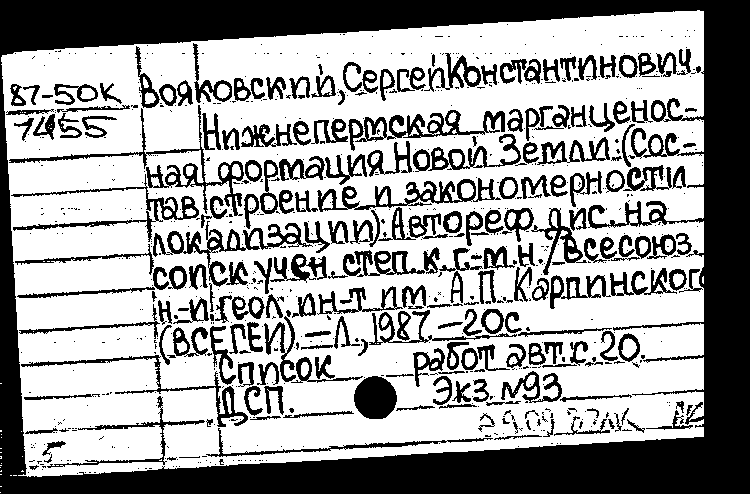 87-50К Вояковский, Сергей Константинович.
7455 Нижнепермская марганценос-
ная формация Новой Земли: (Сос-
тав, строение и закономерности
локализации): Автореф. дис. на
соиск. учен. степ. к. г.-м. н. / Всесоюз.
н.-и. геол. ин-т им. А. П. Карпинского
(ВСЕГЕИ). — Л., 1987. — 20 с.
Список работ авт. с. 20.
ДСП. Экз. №93.
5